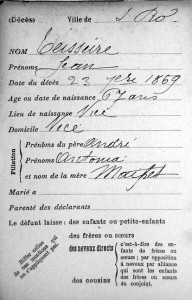 (Décès) Ville de S Ro
NOM Teisseire
Prénoms Jean
Date du décès 23 1869
Age ou date de naissance 67 ans
Lieu de naissance Vicé
Domicile Vicé
Filiation
Prénoms du père André
Prénoms Antonia
et nom de la mère
Marié a
Parenté des déclarants
Le défunt laisse : des enfants ou petits-enfants
des frères ou sœurs
des neveux directs
c'est-à-dire des enfants de frères ou sœurs; par opposition à neveux par alliance qui sont les enfants des frères ou sœurs du conjoint.
des cousins